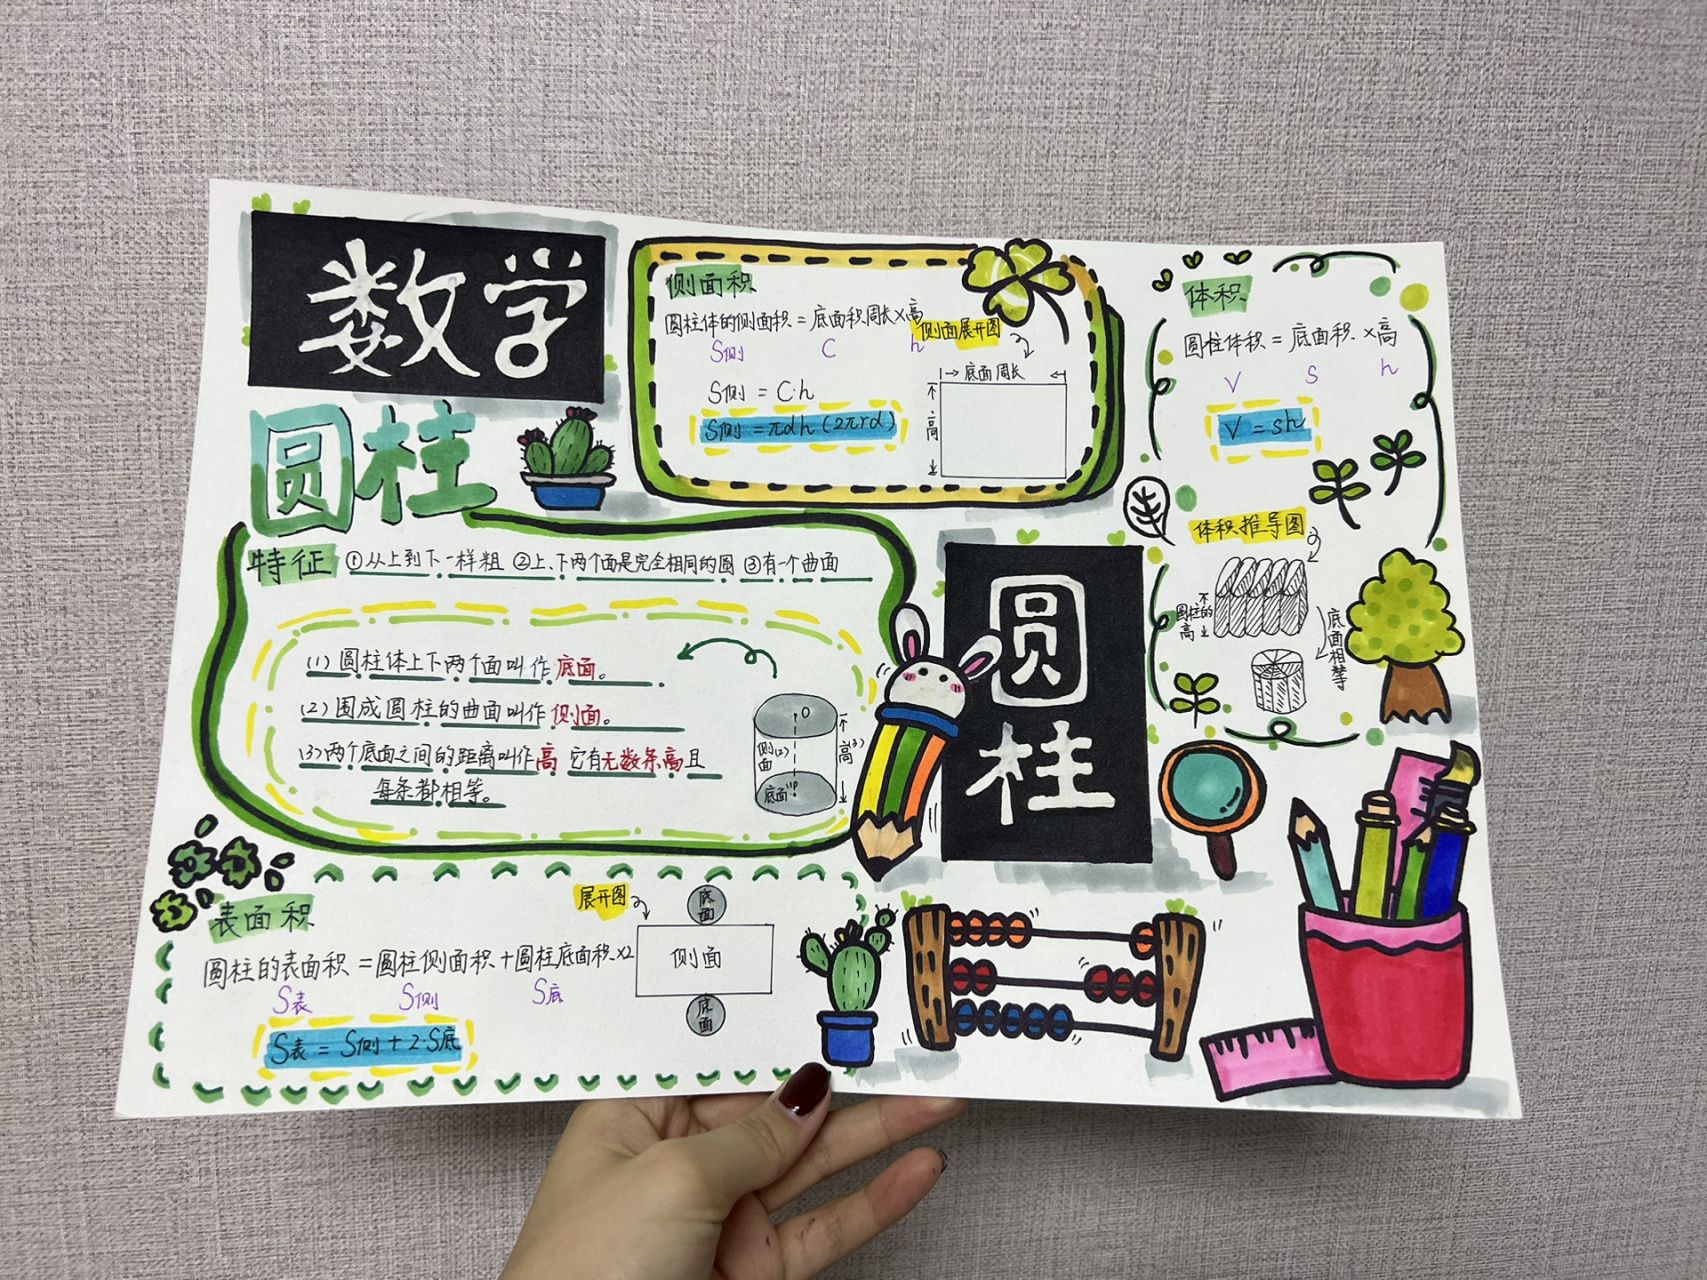 数学
圆柱
侧面积
圆柱体的侧面积=底面积周长×高
S侧 C h
S侧=C·h
S侧=πdh(2πrd)
侧面展开图
底面周长
高
体积
圆柱体积=底面积×高
V S h
V=sh
体积推导图
圆柱的高
底面相等
特征 ①从上到下一样粗 ②上、下两个面是完全相同的圆 ③有一个曲面
(1)圆柱体上下两个面叫作底面。
(2)围成圆柱的曲面叫作侧面。
(3)两个底面之间的距离叫作高 它有无数条高且
每条都相等。
O
侧(2)面
高(3)
底面(1)
圆柱
表面积
圆柱的表面积=圆柱侧面积+圆柱底面积×2
S表 S侧 S底
S表=S侧+2·S底
展开图
底面
侧面
底面